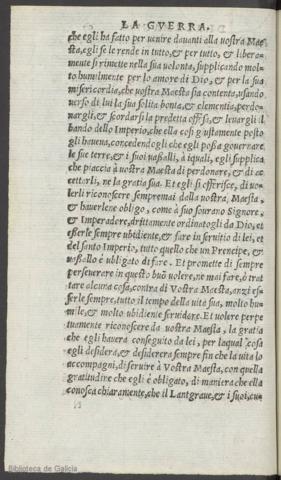 LA GVERRA.
che egli ha fatto per venire dauanti alla vostra Mae
stà, egli se le rende in tutto, & per tutto, & libera-
mente si rimette nella sua volontà, supplicando mol-
to humilmente per lo amore di Dio, & per la sua
misericordia, che vostra Maestà sia contenta, usando
verso di lui la sua solita bontà, & clementia, perdo-
nargli, & scordarsi la predetta offesa, & leuargli il
bando dello Imperio, che ella così giustamente posto
gli haueua, concedendogli che egli possa gouernare
le sue terre, & i suoi vassalli, à i quali, egli supplica
che piaccia à vostra Maestà di perdonare, & di ac
cettarli, ne la gratia sua. Et egli si offerisce, di vo-
lerli riconoscere sempremai dalla vostra, Maestà,
& hauerlene obligo, come à suo sourano Signore,
& Imperadore, drittamente ordinatogli da Dio, et
esserle sempre ubidiente, & fare in seruitio di lei, et
del santo Imperio, tutto quello che un Prencipe, &
vassallo è obligato di fare. Et promette di sempre
perseuerare in questo buō volere, ne mai fare, ò trat
tare alcuna cosa, contra di Vostra Maestà, anzi es-
ser le sempre, tutto il tempo della vita sua, molto hu-
mile, & molto ubidiente seruidore. Et volere perpe
tuamente riconoscere da vostra Maestà, la gratia
che egli hauerà conseguito da lei, per laqual cosa
egli desidera, & desidererà sempre fin che la vita lo
accompagni, di seruire à Vostra Maestà, con quella
gratitudine che egli è obligato, di maniera che ella
conosca chiaramente, che il Lantgraue, & i suoi, cu=
Biblioteca de Galicia